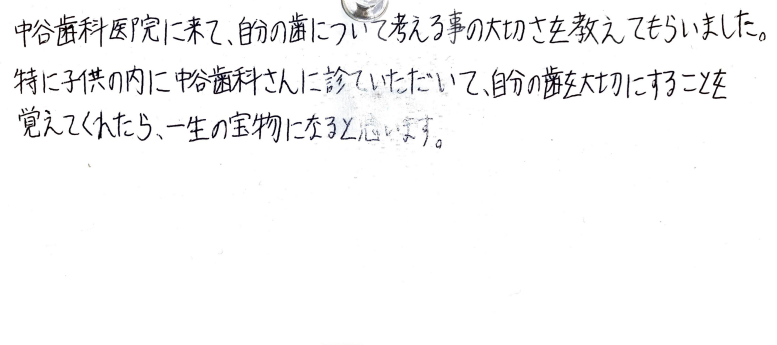 中谷歯科医院に来て、自分の歯について考える事の大切さを教えてもらいました。
特に子供の内に中谷歯科さんに診ていただいて、自分の歯を大切にすることを
覚えてくれたら、一生の宝物になると思います。